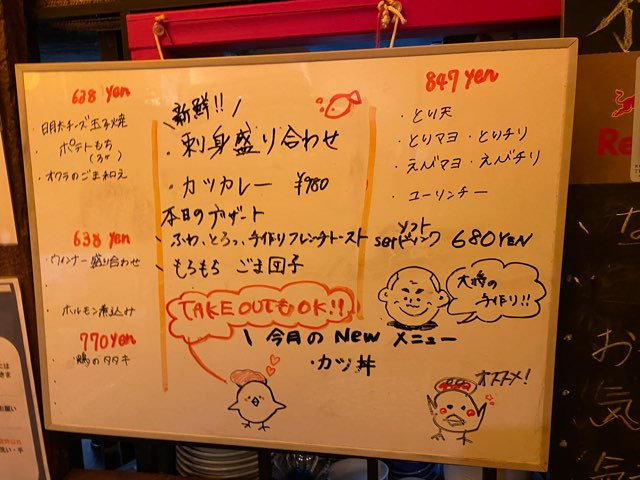 628 yen
・明太チーズ玉子焼
・ポテトもち
(3ヶ)
・オクラのごま和え
638 yen
・ウィンナー盛り合わせ
・ホルモン煮込み
770yen
・鶏のタタキ
新鮮!!
・刺身盛り合わせ
・カツカレー ¥980
本日のデザート
ふわ、とろっ、手作りフレンチトースト
ソフト
setドリンク 680YEN
もちもち ごま団子
TAKE OUTもOK!!
今月の New メニュー
・カツ丼
847 yen
・とり天
・とりマヨ・とりチリ
・えびマヨ・えびチリ
・ユーリンチー
大将の
手作り!!
オススメ!
Re
お
気